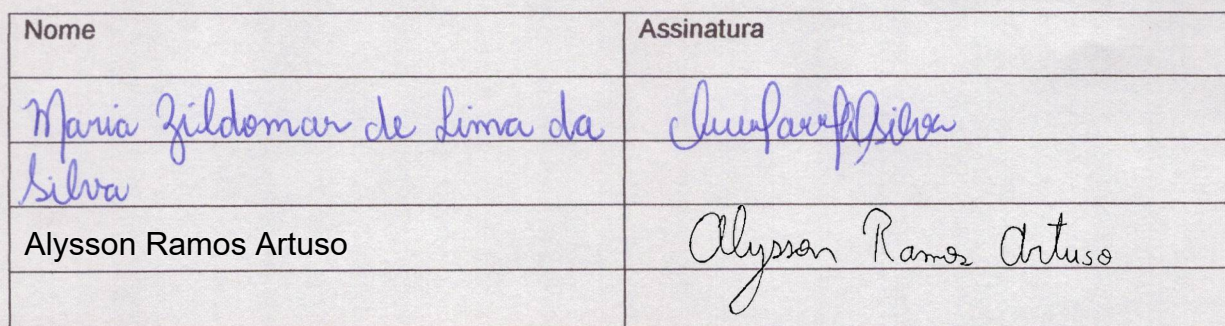 Nome Assinatura
Maria Zildomar de Lima da
Silva
Alysson Ramos Artuso Alysson Ramos Artuso